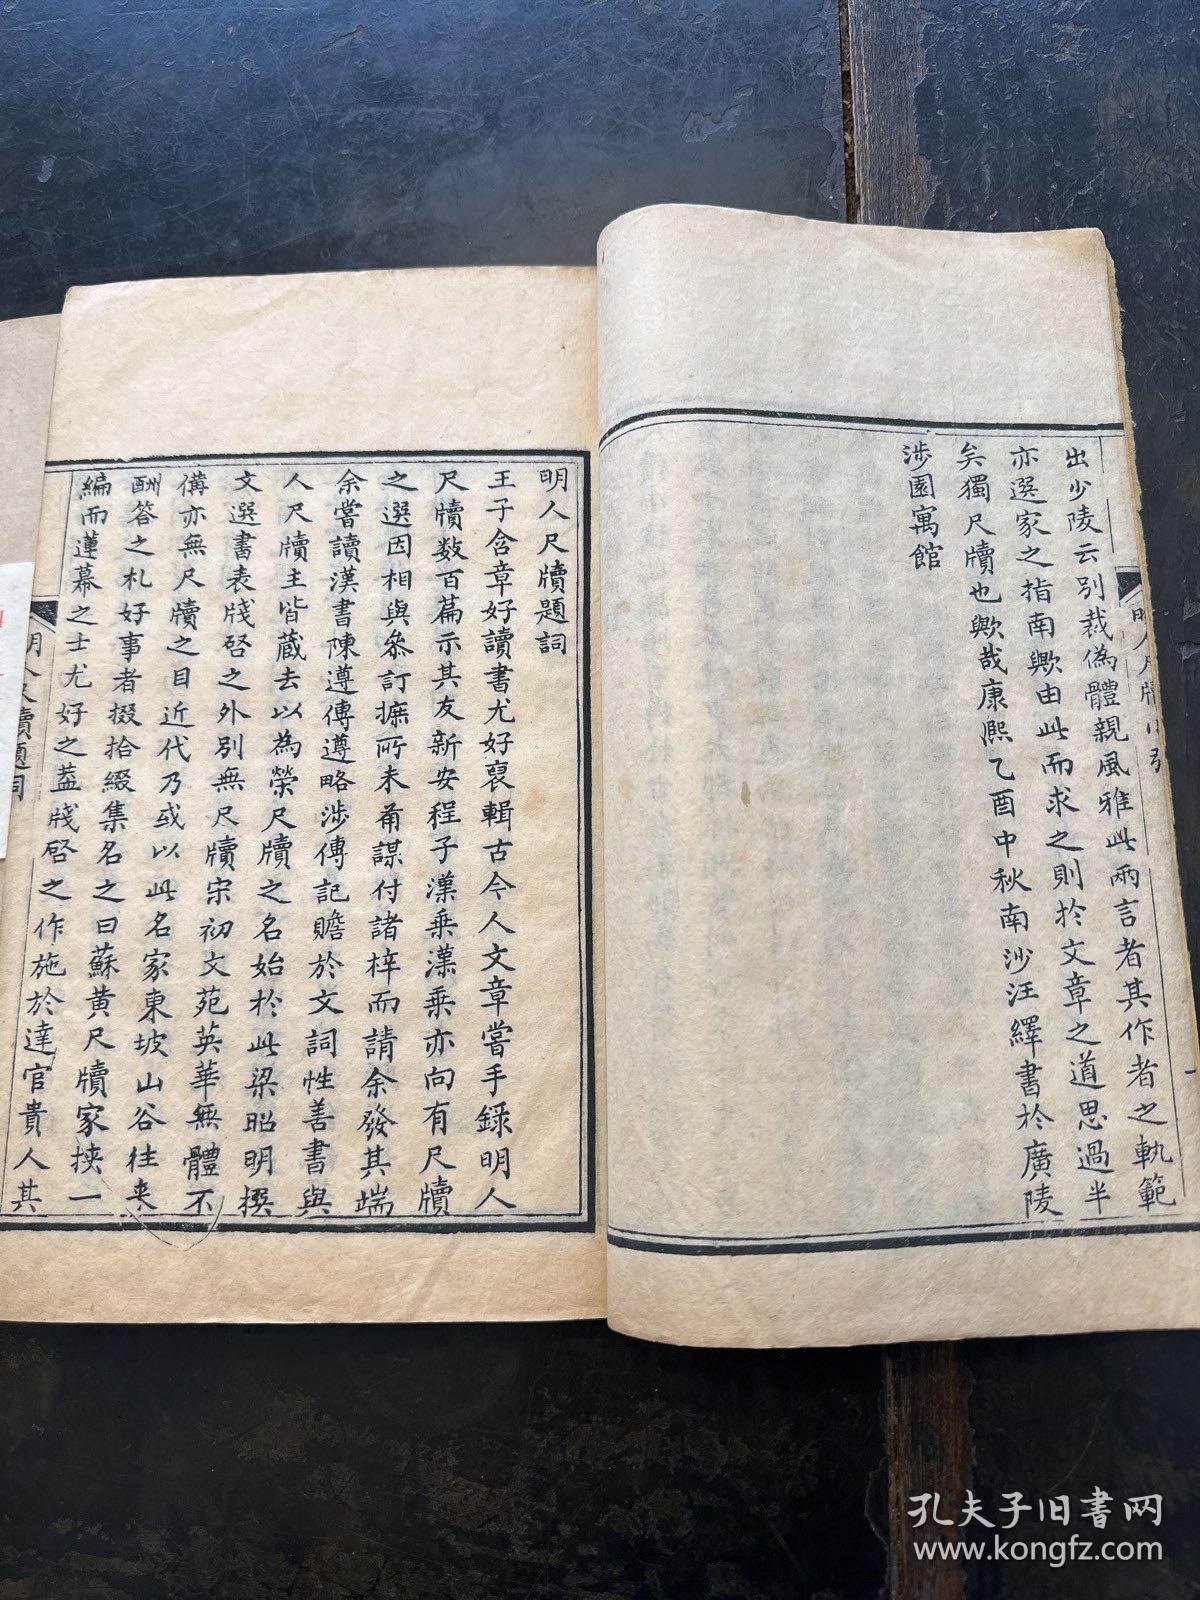 出少陵云別裁偽體親風雅此兩言者其作者之軌範
亦選家之指南歟由此而求之則於文章之道思過半
矣獨尺牘也歟哉康熙乙酉中秋南沙汪繹書於廣陵
涉園寓館
明人尺牘題詞
王子含章好讀書尤好裒輯古今人文章嘗手錄明人
尺牘数百萹示其友新安程子漢乗漢乗亦向有尺牘
之選因相與叅訂摭所未甭謀付諸梓而請余發其端
余嘗讀漢書陳遵傳遵略涉傳記贍於文詞性善書與
人尺牘主皆蔵去以為榮尺牘之名始於此梁昭明撰
文選書表牋啓之外別無尺牘宋初文苑英華無體不
僃亦無尺牘之目近代乃或以此名家東坡山谷往来
酬答之札好事者掇拾綴集名之曰蘇黃尺牘家挟一
編而蓮幕之士尤好之葢牋啓之作施於達官貴人其
孔夫子旧書网
www.kongfz.com